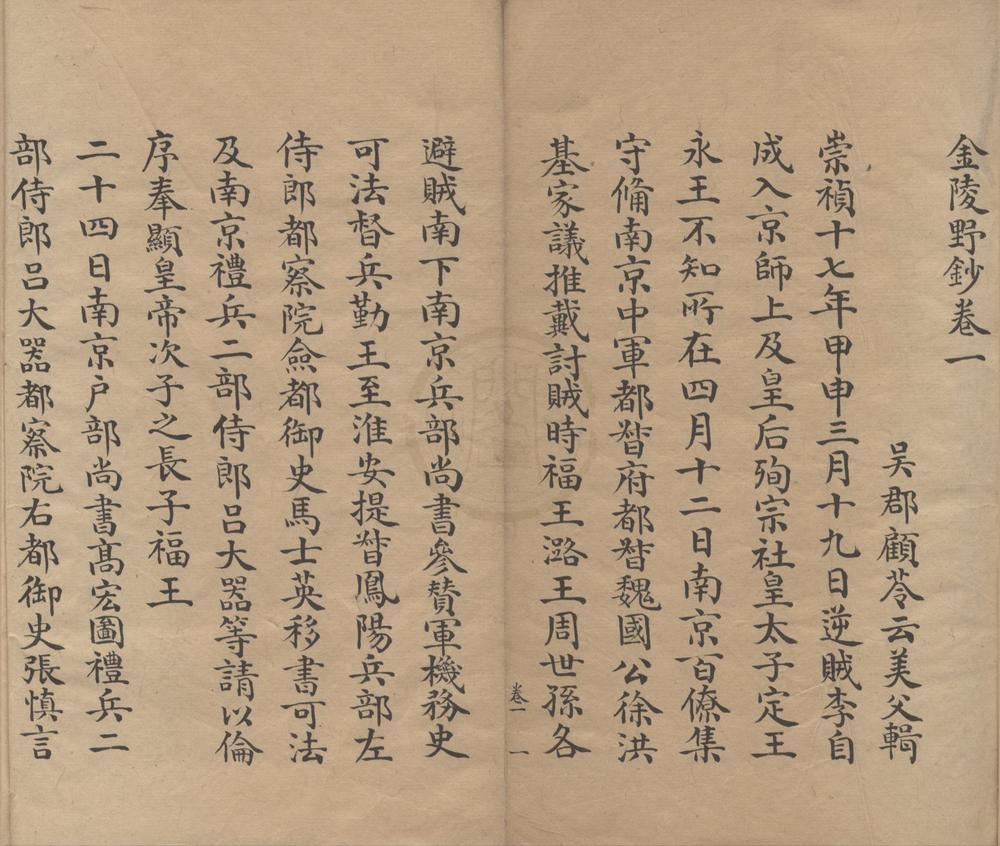 金陵野鈔卷一
吴郡顧苓云美父輯
崇禎十七年甲申三月十九日逆賊李自
成入京師上及皇后殉宗社皇太子定王
永王不知所在四月十二日南京百僚集
守備南京中軍都督府都督魏國公徐洪
基家議推戴討賊時福王潞王周世孫各
卷一 一
避賊南下南京兵部尚書參贊軍機務史
可法督兵勤王至淮安提督鳳陽兵部左
侍郎都察院僉都御史馬士英移書可法
及南京禮兵二部侍郎吕大器等請以倫
序奉顯皇帝次子之長子福王
二十四日南京户部尚書髙宏圖禮兵二
部侍郎吕大器都察院右都御史張慎言